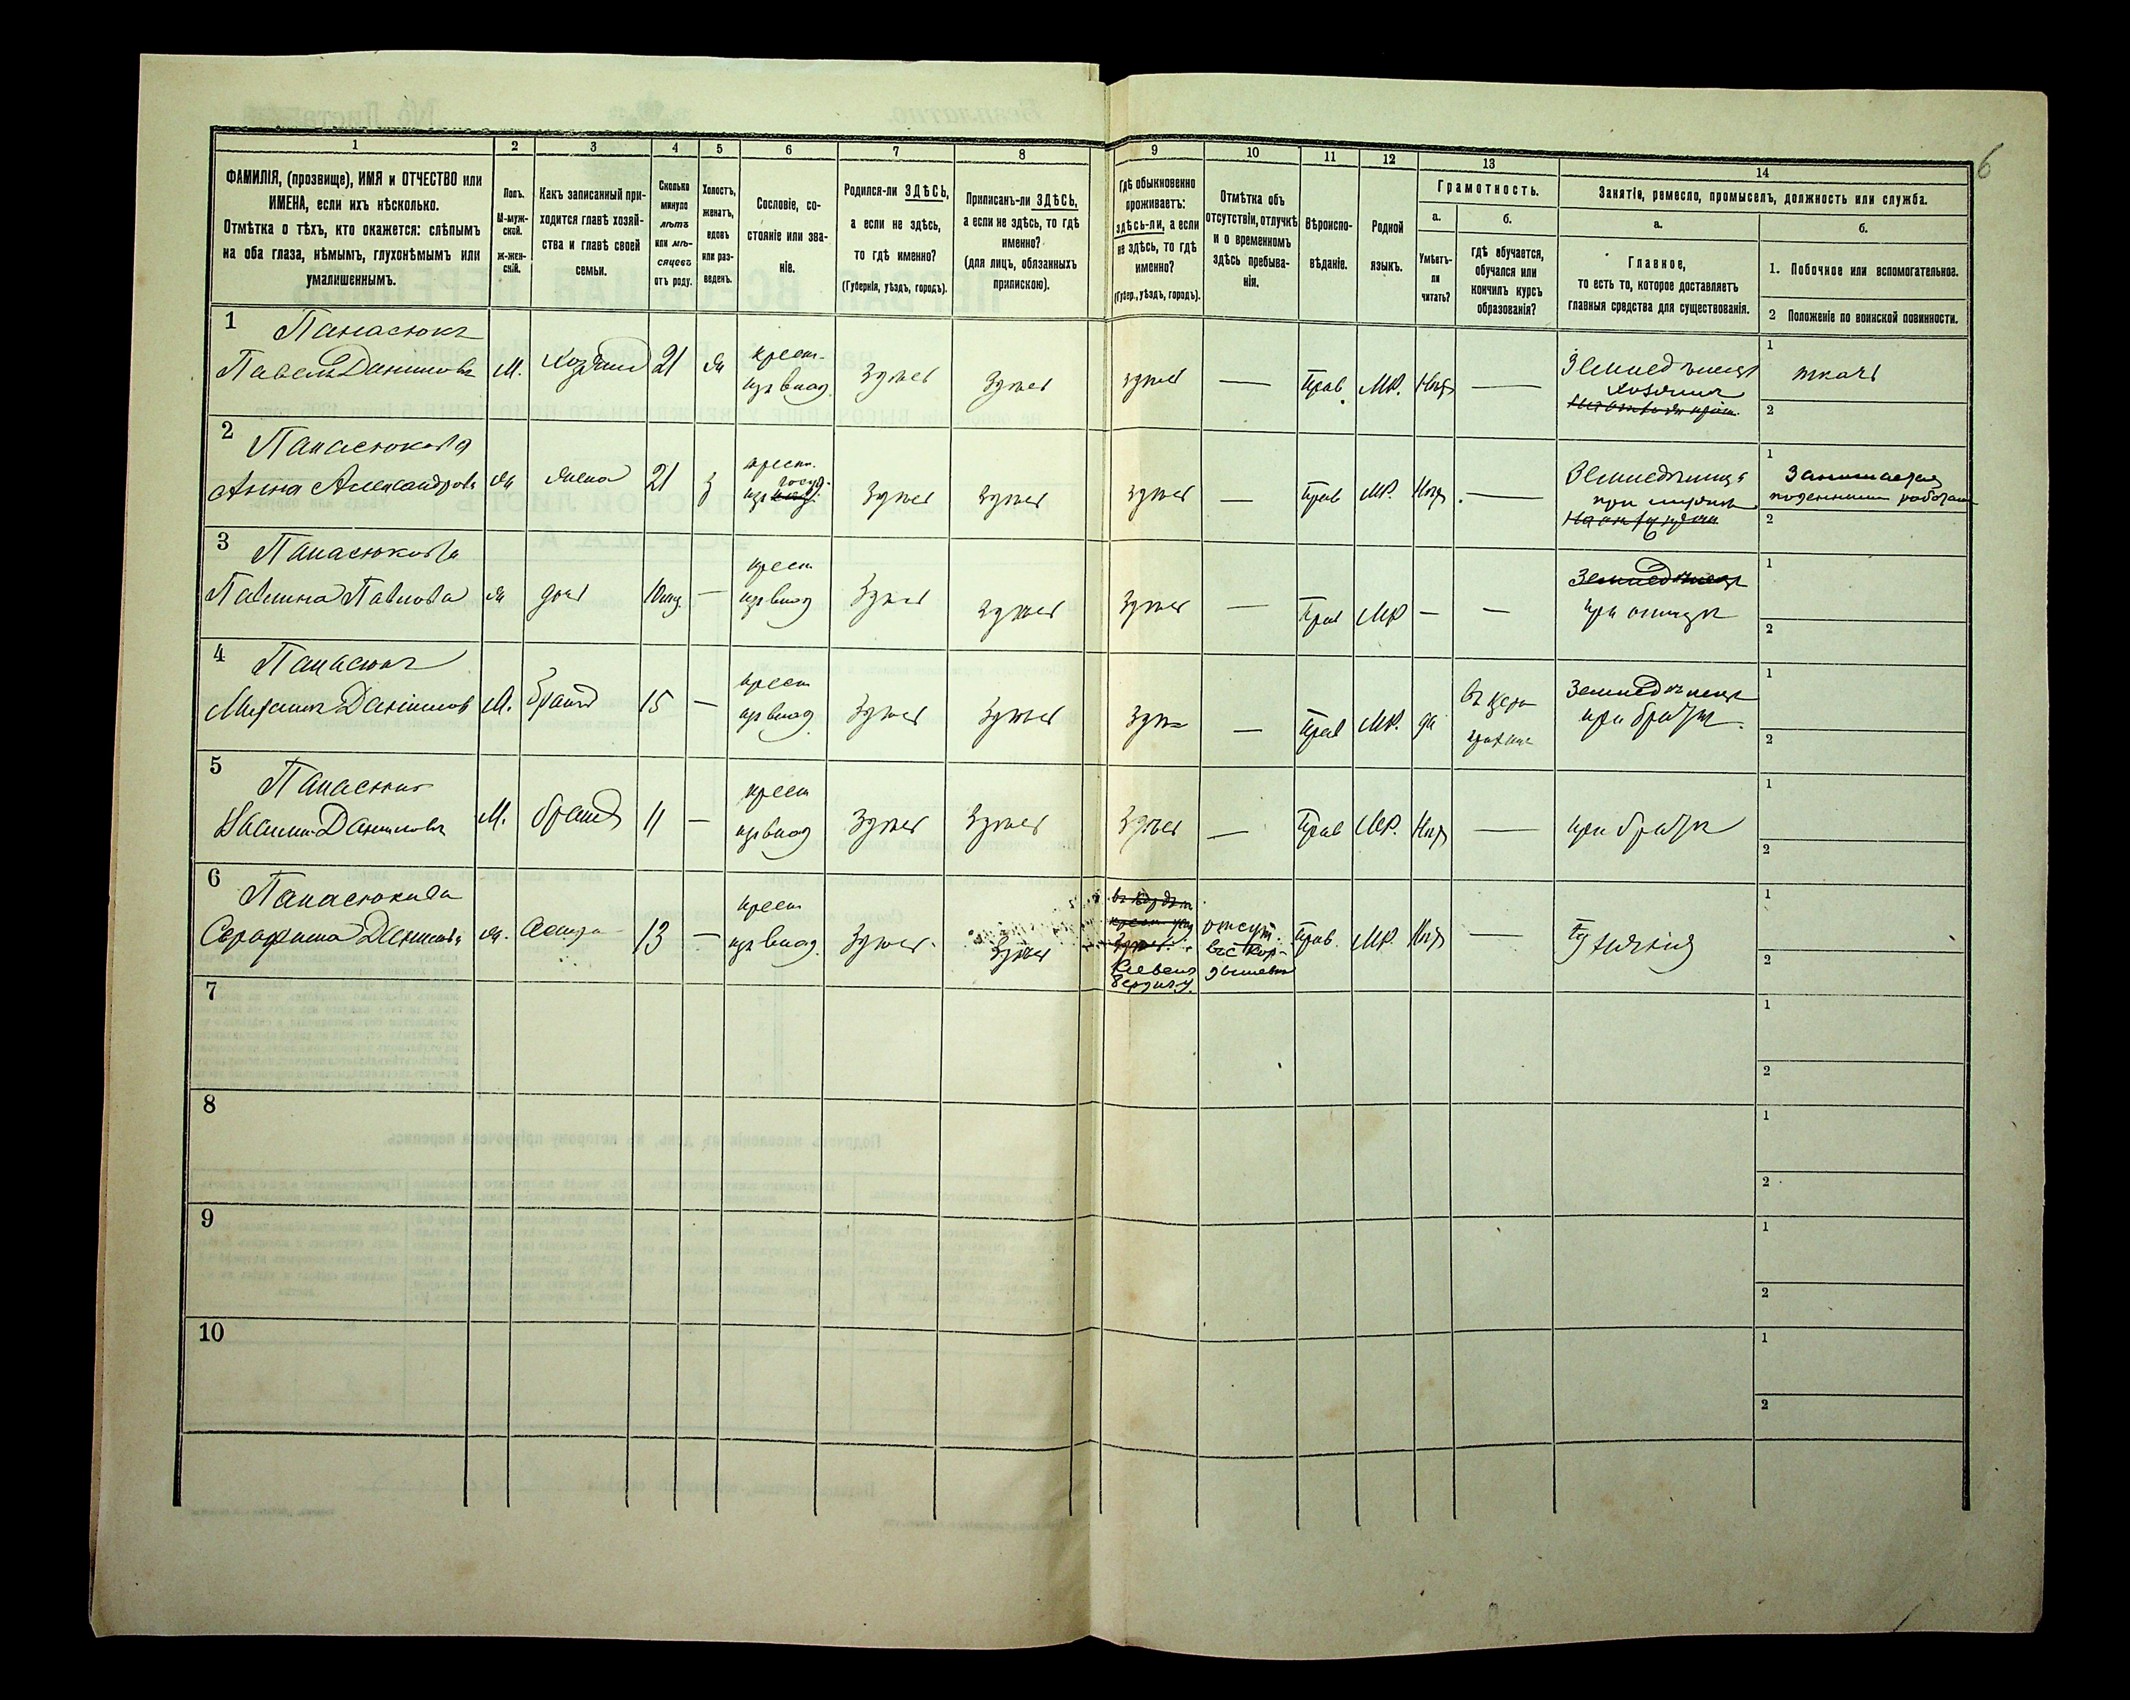 6
1 2 3 4 5 6 7 8 9 10 11 12 13 14
ФАМИЛІЯ, (прозвище), ИМЯ и ОТЧЕСТВО или
ИМЕНА, если ихъ нѣсколько.
Отмѣтка о тѣхъ, кто окажется: слѣпымъ
на оба глаза, нѣмымъ, глухонѣмымъ или
умалишеннымъ.
Полъ.
М-муж-
ской.
Ж-жен-
скій.
Какъ записанный при-
ходится главѣ хозяй-
ства и главѣ своей
семьи.
Сколько
минуло
лѣтъ
или мѣ-
сяцевъ
отъ роду.
Холостъ,
женатъ,
вдовъ
или раз-
веденъ.
Сословіе, со-
стояніе или зва-
ніе.
Родился-ли ЗДѢСЬ,
а если не здѣсь,
то гдѣ именно?
(Губернія, уѣздъ, городъ).
Приписанъ-ли ЗДѢСЬ,
а если не здѣсь, то гдѣ
именно?
(для лицъ, обязанныхъ
припискою).
Гдѣ обыкновенно
проживаетъ:
здѣсь-ли, а если
не здѣсь, то гдѣ
именно?
(Губер., уѣздъ, городъ).
Отмѣтка объ
отсутствіи, отлучкѣ
и о временномъ
здѣсь пребыва-
ніи.
Вѣроиспо-
вѣданіе.
Родной
языкъ.
Грамотность.
а.
Умѣетъ-
ли
читать?
б.
гдѣ обучается,
обучался или
кончилъ курсъ
образованія?
Занятіе, ремесло, промыселъ, должность или служба.
а.
Главное,
то есть то, которое доставляетъ
главныя средства для существованія.
б.
1. Побочное или вспомогательное.
2 Положеніе по воинской повинности.
1 Панасюкъ
Павелъ Даниловъ М. хозяинъ 21 ж крест. изъ влад. здѣсь здѣсь здѣсь — Прав. МР. Нѣтъ — Земледѣлецъ
хозяинъ
1 ткачъ
2
2 Панасюкова
Анна Александрова ж жена 21 з крест. изъ госуд. здѣсь здѣсь здѣсь — Прав МР. Нѣтъ — Земледѣлица
при мужѣ
1 Занимается
поденными работами
2
3 Панасюкова
Павлина Павлова ж дочь 10 мц. — крест изъ влад здѣсь здѣсь здѣсь — Прав МР — — Земледѣлецъ
при отцѣ
1
2
4 Панасюкъ
Даниловъ М. братъ 15 — крест изъ влад. здѣсь здѣсь здѣсь — Прав МР. да въ церк
Земледѣлецъ
при братѣ.
1
2
5 Панасюкъ
Даниловъ М. братъ 11 — крест изъ влад здѣсь здѣсь здѣсь — Прав МР. Нѣтъ — при братѣ
1
2
6 Панасюкова
Серафима Данилова ж. сестра 13 — крест изъ влад. здѣсь здѣсь
здѣсь
Кіевск
Бердич. у.
отсут.
въ с Кор-
дышевкѣ
Прав. МР. Нѣтъ —
1
2
7
1
2
8
1
2
9
1
2
10
1
2